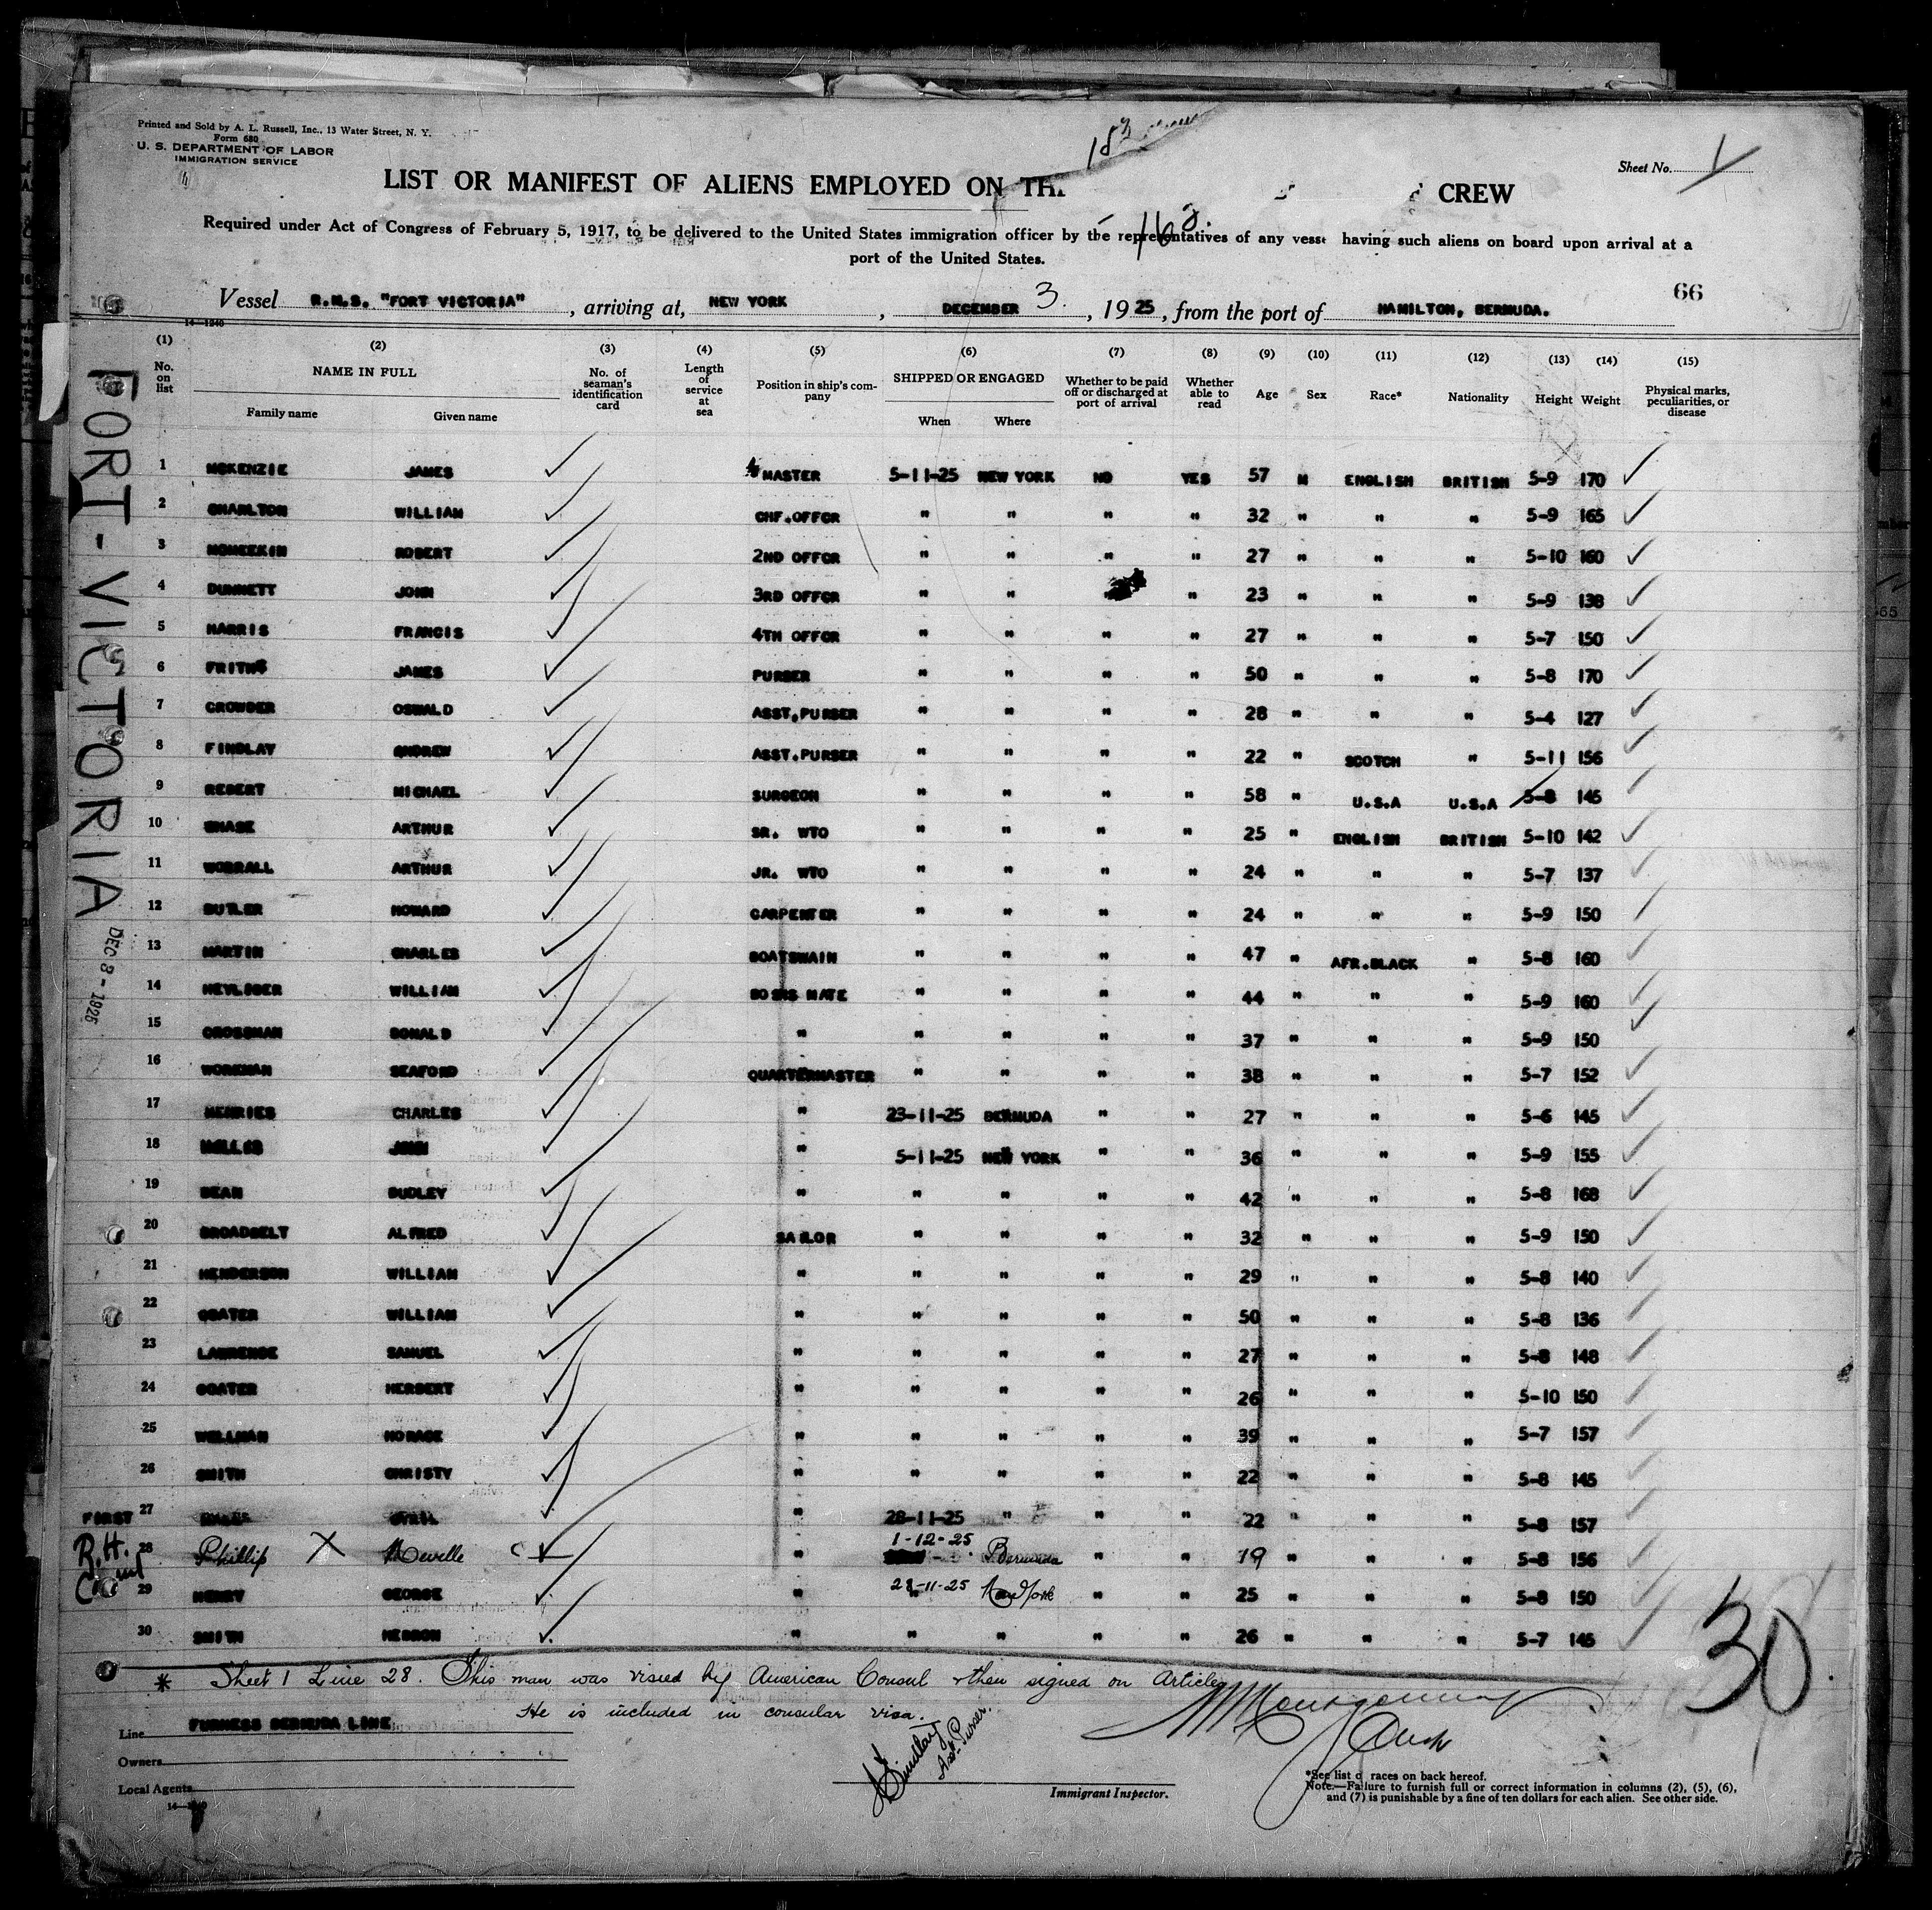 Printed and Sold by A. L. Russell, Inc., 13 Water Street, N. Y.
Form 680
U. S. DEPARTMENT OF LABOR
IMMIGRATION SERVICE
Sheet No. 1
LIST OR MANIFEST OF ALIENS EMPLOYED ON TH CREW
Required under Act of Congress of February 5, 1917, to be delivered to the United States immigration officer by the representatives of any vess having such aliens on board upon arrival at a
port of the United States.
66
Vessel R.M.S. "FORT VICTORIA", arriving at, NEW YORK, DECEMBER 3., 1925, from the port of HAMILTON, BERMUDA.
14—1240
(1) (2) (3) (4) (5) (6) (7) (8) (9) (10) (11) (12) (13) (14) (15)
No. on list NAME IN FULL Family name Given name No. of seaman's identification card Length of service at sea Position in ship's company SHIPPED OR ENGAGED When Where Whether to be paid off or discharged at port of arrival Whether able to read Age Sex Race* Nationality Height Weight Physical marks, peculiarities, or disease
FORT-VICTORIA
DEC 8-1925
1 MCKENZIE JAMES MASTER 5-11-25 NEW YORK NO YES 57 M ENGLISH BRITISH 5-9 170
2 CHARLTON WILLIAM CHF.OFFCR " " " " 32 " " " 5-9 165
3 ROBERT 2ND OFFCR " " " " 27 " " " 5-10 160
4 DUNNETT JOHN 3RD OFFCR " " " " 23 " " " 5-9 138
5 HARRIS FRANCIS 4TH OFFCR " " " " 27 " " " 5-7 150
6 FRITH JAMES PURSER " " " " 50 " " " 5-8 170
7 CROWDER OSWALD ASST.PURSER " " " " 28 " " " 5-4 127
8 FINDLAY ANDREW ASST.PURSER " " " " 22 " SCOTCH " 5-11 156
9 REBERT MICHAEL SURGEON " " " " 58 " U.S.A U.S.A 5-8 145
10 CHASE ARTHUR SR. WTO " " " " 25 " ENGLISH BRITISH 5-10 142
11 WORRALL ARTHUR JR. WTO " " " " 24 " " " 5-7 137
12 BUTLER HOWARD CARPENTER " " " " 24 " " " 5-9 150
13 MARTIN CHARLES BOATSWAIN " " " " 47 " AFR.BLACK " 5-8 160
14 HEYLIGER WILLIAM BOSNS MATE " " " " 44 " " " 5-9 160
15 CROSSMAN DONALD " " " " " 37 " " " 5-9 150
16 WORKMAN SEAFORD QUARTERMASTER " " " " 38 " " " 5-7 152
17 HENRIES CHARLES " 23-11-25 BERMUDA " " 27 " " " 5-6 145
18 JOHN " 5-11-25 NEW YORK " " 36 " " " 5-9 155
19 BEAN DUDLEY " " " " " 42 " " " 5-8 168
20 BROADBELT ALFRED SAILOR " " " " 32 " " " 5-9 150
21 HENDERSON WILLIAM " " " " " 29 " " " 5-8 140
22 GOATER WILLIAM " " " " " 50 " " " 5-8 136
23 LAWRENCE SAMUEL " " " " " 27 " " " 5-8 148
24 GOATER HERBERT " " " " " 26 " " " 5-10 150
25 WELLMAN HORACE " " " " " 39 " " " 5-7 157
26 SMITH CHRISTY " " " " " 22 " " " 5-8 145
FIRST 27 CYRIL " 28-11-25 " " " 22 " " " 5-8 157
R.H. 28 Phillip X Neville " 1-12-25 Bermuda " " 19 " " " 5-8 156
29 HENRY GEORGE " 28-11-25 New York " " 25 " " " 5-8 150
30 SMITH HEBRON " " " " " 26 " " " 5-7 145
30
* Sheet 1 Line 28. This man was visied by American Consul & then signed on Articles
He is included in consular visa.
A Findlay
Asst. Purser.
Line FURNESS BERMUDA LINE
Owners
Local Agents
14—1240
Immigrant Inspector.
*See list o races on back hereof.
Note.—Failure to furnish full or correct information in columns (2), (5), (6),
and (7) is punishable by a fine of ten dollars for each alien. See other side.